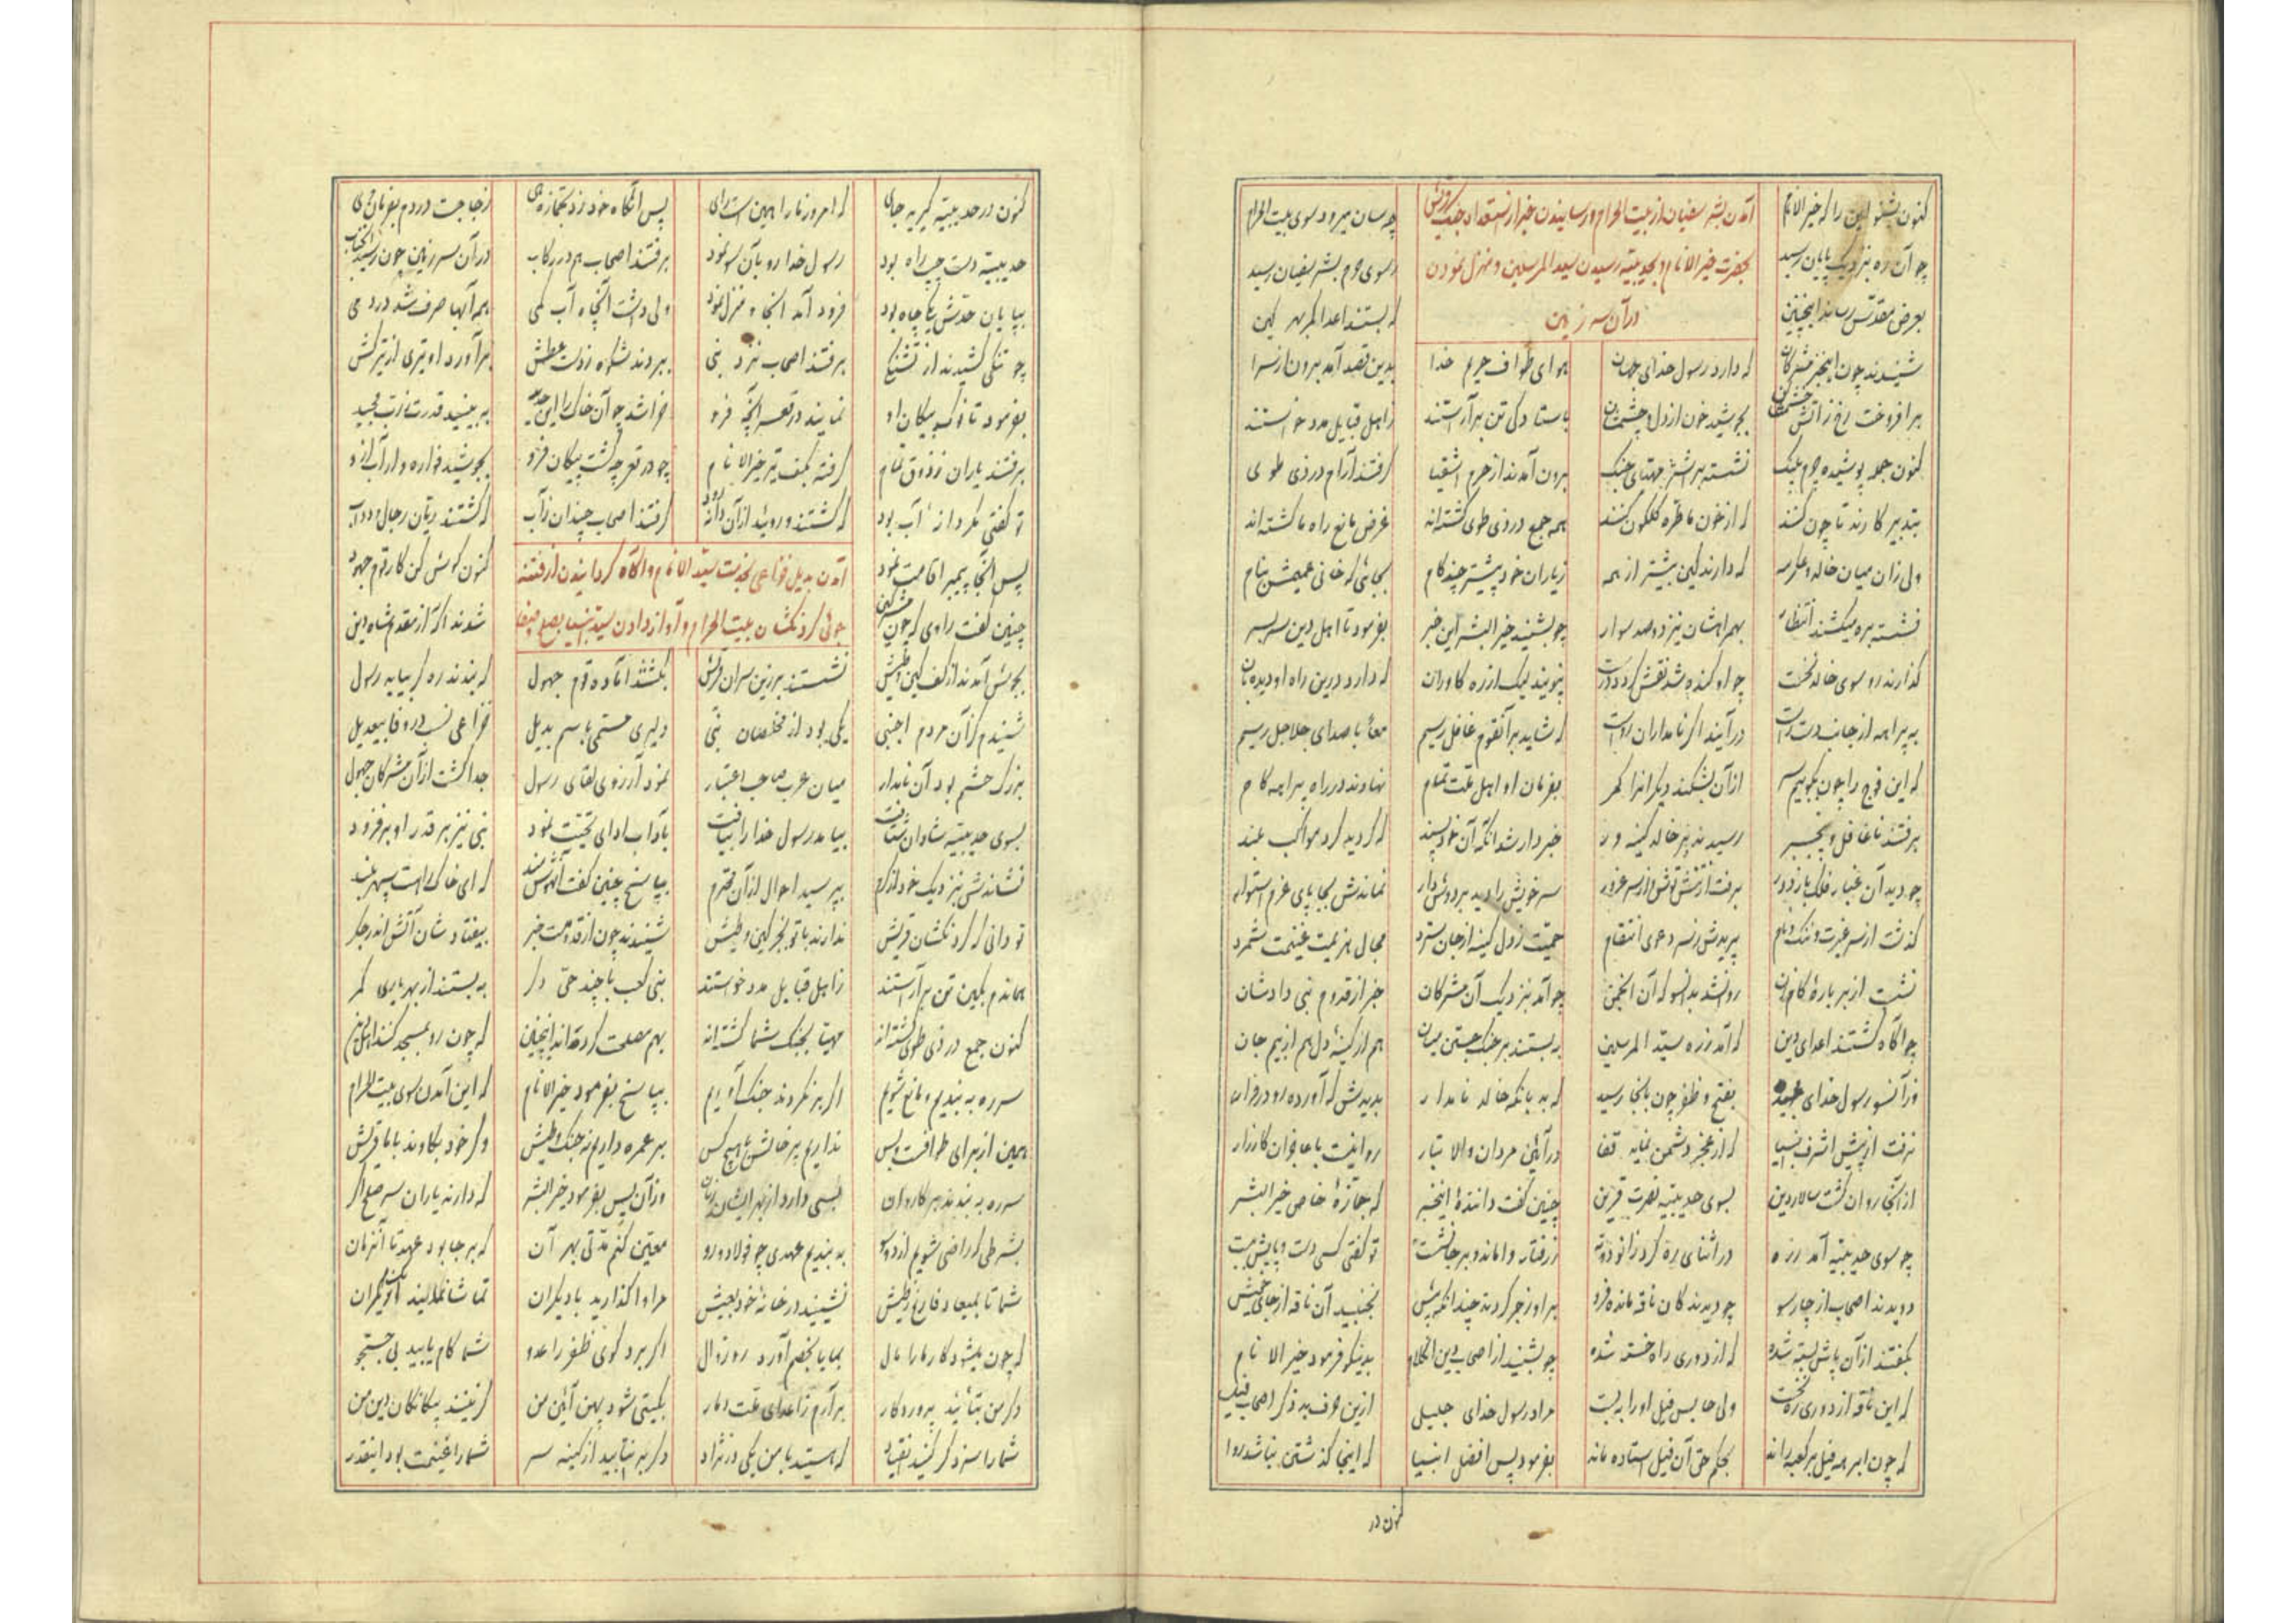 کنون بشنو این را که خیر الانام
چه سان میرود سوی بیت الحرام
آمدن بشر سفیان از بیت الحرام و رسانیدن خبر از استعداد جنگ قریش
بحضرت خیر الانام و بحدیبیه رسیدن سید المرسلین و منزل نمودن
در آن سر زمین
چو آن ره بنزدیک پایان رسید
ز سوی حرم بشر سفیان رسید
بعرض مقدس رساند اینچنین
که بستند اعدا کمر بهر کین
شنیدند چون اینخبر مشرکان
که دارد رسول خدای جهان
هوای طواف حریم خدا
بدین قصد آمد برون از سرا
بر افروخت رخ ز آتش خشمشان
بجوشید خون از دل و چشمشان
باستادگی تن بر آراستند
ز اهل قبایل مدد خواستند
کنون جمله پوشیده چرم پلنگ
نشسته بر اشتر مهیای جنگ
برون آمدند از حرم اشقیا
گرفتند آرام در ذی طوی
بتدبیر کارند تا چون کنند
که از خون ما طره گلگون کنند
همه جمع در ذی طوی گشته‌اند
غرض مانع راه ما گشته‌اند
ولی زان میان خالد و عکرمه
که دارند کین بیشتر از همه
ز یاران خود پیشتر چند گام
بجائی که خانی عمیمش بنام
نشسته بره میکشند انتظار
بهمراهشان نیز دو صد سوار
چو بشنید خیر البشر این خبر
بفرمود تا اهل دین سر بسر
گذارند رو سوی خالد نخست
که دارد درین راه او دیده‌بان
به پیراهه از جانب دست راست
در آیند اگر نامداران رواست
که شاید بر آنقوم غافل رسیم
معاً با صدای جلاجل رسیم
که این فوج را چون بکوبیم سر
از آن بشکند دیگرانرا کمر
بفرمان او اهل ملت تمام
نهادند در راه پیراهه گام
برفتند تا غافل و بیخبر
رسیدند بر خالد کینه ور
خبردار شد آنگه آن خودپسند
که گردید گرد مواکب بلند
چو دید آن غبار فلک باز دور
برفت از تنش توش و از سر غرور
سر خویش را دید بر دوش دار
نماندش بجا پای عزم استوار
گذشت از سر غیرت و ننگ و نام
پریدش ز سر دعوی انتقام
حمیت ز دل کینه از جان سترد
مجال هزیمت غنیمت شمرد
نشست از بر باره گام زن
روانشد بدانسو که آن انجمن
چو آمد بنزدیک آن مشرکان
خبر از قدوم نبی دادشان
چو آگاه گشتند اعدای دین
که آمد ز ره سید المرسلین
به بستند بر جنگ جستن میان
هم از کینه دل هم از بیم جان
وز آنسو رسول خدای مجید
بفتح و ظفر چون بانجا رسید
که بد بانگه خالد نامدار
بدیدش که آورده رو در فرار
نرفت از پیش اشرف انبیا
که از عجز دشمن نماید قفا
در آئین مردان والا تبار
روا نیست با عاجزان کارزار
از آنجا روان گشت سالار دین
بسوی حدیبیه نصرت قرین
چنین گفت داننده اینخبر
که جمازه خاص خیر البشر
چو سوی حدیبیه آمد ز ره
در اثنای ره کرد زانو دوته
ز رفتار واماند و بر جا نشست
تو گفتی کسی دست و پایش ببست
دویدند اصحاب از چارسو
چو دیدند کان ناقه مانده فرو
بر او زجر کردند چندانکه بیش
نجنبید آن ناقه از جای خویش
بگفتند از آن پاش بسته شده
که از دوری راه خسته شده
چو بشنید از اصحاب دین این کلام
بدینگونه فرمود خیر الانام
که این ناقه از دوری ره نخست
ولی حابس فیل او را به بست
مراد رسول خدای جلیل
ازین حرف بد ذکر اصحاب فیل
که چون ابرهه فیل بر کعبه راند
بحکم حق آن فیل استاده ماند
بفرمود پس افضل انبیا
که اینجا گذشتن نباشد روا
کنون در
کنون در حدیبیه گیریم جای
که امروز ما را همین است رای
پس آنگاه خود زد بجمازه هی
ز جا جست در دم بفرمان وی
حدیبیه دست چپ راه بود
رسول خدا رو بآن سو نمود
برفتند اصحاب هم در رکاب
در آن سر زمین چون رسید آنجناب
بپایان حدش یکی چاه بود
فرود آمد آنجا و منزل نمود
ولی داشت آنچاه آب کمی
همه آبها صرف شد در دمی
چو تنگی کشیدند از تشنگی
برفتند اصحاب نزد نبی
ببردند شکوه ز دست عطش
بر آورد او تیری از ترکش
بفرمود تا نوک پیکان او
نمایند در قعر آنچه فرو
خراشد چو آن خاک را این حدید
به بینید قدرت ز رب مجید
برفتند یاران ز ذوق تمام
گرفته بکف تیر خیر الانام
چو در قعر چه گشت پیکان فرو
بجوشید فواره وار آب ازو
تو گفتی مگر دانه آب بود
که گشتند و روئید از آن دانه زود
گرفتند اصحاب چندان ز آب
که گشتند ریان رجال و دواب
پس آنجا پیمبر اقامت نمود
کنون گوش کن کار قوم جهود
آمدن بدیل خزاعی بخدمت سید الانام و آگاه گردانیدن از فتنه
جوئی گردنکشان بیت الحرام و آواز دادن سید انبیا بصلح
چنین گفت راوی که چون مشرکین
شدند آگه از مقدم شاه دین
بجوش آمدند از کف کین و طیش
نشستند بر زین سران قریش
بکشتند آماده قوم جهول
که بندند ره گر بیاید رسول
شنیدم کز آن مردم اجنبی
یکی بود از مخلصان نبی
دلیری مسمی باسم بدیل
خزاعی نسب در وفا بیعدیل
بزرگ حشم بود آن نامدار
میان عرب صاحب اعتبار
نمود آرزوی لقای رسول
جدا گشت از آن مشرکان جهول
بسوی حدیبیه شادان شتافت
بیامد رسول خدا را بیافت
بآداب ادای تحیت نمود
نبی نیز بر قدر او بر فزود
نشاندش بنزدیک خود از کرم
بپرسید احوال از آن محترم
بپاسخ چنین گفت آنهوشمند
که ای خاک راهت سپهر بلند
تو دانی که گردنکشان قریش
ندارند با تو بجز کین و طیش
شنیدند چون از قدومت خبر
بیفتاد شان آتش اندر جگر
هماندم بکین تن بر آراستند
ز اهل قبایل مدد خواستند
بنی کعب با چند حی دگر
به بستند از بهر یاری کمر
کنون جمع در ذی طوی گشته‌اند
مهیا بجنگ شما گشته‌اند
بهم مصلحت کرده‌اند اینچنین
که چون رو بمسجد کنند اهل دین
سر ره به بندیم و مانع شویم
اگر بر نگردند جنگ آوریم
بپاسخ بفرمود خیر الانام
که این آمدن سوی بیت الحرام
همین از برای طوافست و بس
نداریم پرخاش با هیچ کس
بر عمره داریم نه جنگ و طیش
وگر خود بکاوند با ما قریش
سر ره به بندند بر کاروان
بسی دارد از بهر ایشان زیان
وز آن پس بفرمود خیر البشر
که دارند یاران سر صلح اگر
بشرطی که راضی شویم از دو سو
به بندیم عهدی چو فولاد و رو
معین کنم مدتی بهر آن
که بر جا بود عهد تا آنزمان
شما تا بمیعاد فارغ ز طیش
نشینید در خانه خود بعیش
مرا واگذارید با دیگران
تماشا نمائید از یکران
که چون میشود کار ما را مال
بما یا بخصم آورد رو زوال
اگر برد گوی ظفر را عدو
شما کام یابید بی جستجو
دگر من بتأئید پروردگار
بر آرم ز اعدای ملت دمار
بگیتی شود پهن آئین من
گزینند بیگانگان دین من
شما را سزد گر کنید انقیاد
که هستید با من یکی در نژاد
دگر بر نتابید از کینه سر
شما را غنیمت بود اینقدر